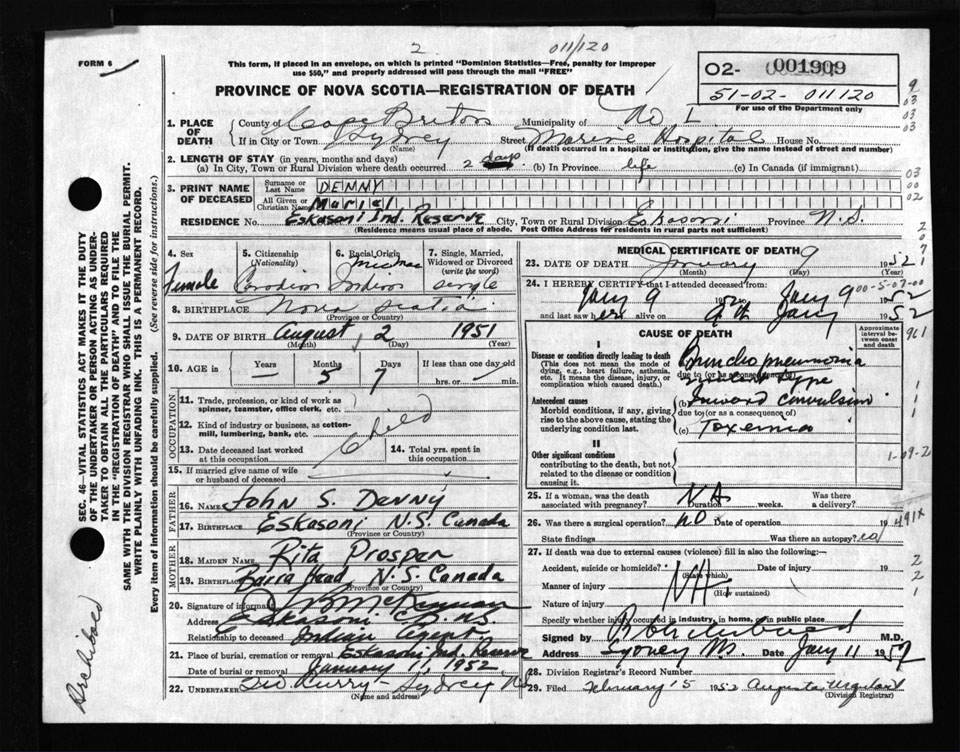 2 011/120
FORM 6
This form, if placed in an envelope, on which is printed "Dominion Statistics—Free, penalty for improper
use $50," and properly addressed will pass through the mail "FREE"
02- 001909
51-02- 011120
For use of the Department only
PROVINCE OF NOVA SCOTIA—REGISTRATION OF DEATH
1. PLACE OF DEATH
County of Cape Breton Municipality of
If in City or Town Sydney Street Marine Hospital House No.
(Name) (If death occurred in a hospital or institution, give the name instead of street and number)
2. LENGTH OF STAY (in years, months and days)
(a) In City, Town or Rural Division where death occurred 2 days (b) In Province life (c) In Canada (if immigrant)
3. PRINT NAME OF DECEASED
Surname or Last Name DENNY
All Given or Christian Names Muriel
RESIDENCE No. Eskasoni Ind. Reserve City, Town or Rural Division Eskasoni Province N.S.
(Residence means usual place of abode. Post Office Address for residents in rural parts not sufficient)
4. Sex Female
5. Citizenship (Nationality) Canadian
6. Racial Origin Micmac Indian
7. Single, Married, Widowed or Divorced (write the word) single
8. BIRTHPLACE Nova Scotia
(Province or Country)
9. DATE OF BIRTH August 2 1951
(Month) (Day) (Year)
10. AGE in Years Months 5 Days 7 If less than one day old hrs. or min.
OCCUPATION
11. Trade, profession, or kind of work as spinner, teamster, office clerk, etc.
12. Kind of industry or business, as cotton-mill, lumbering, bank, etc.
Child
13. Date deceased last worked at this occupation
14. Total yrs. spent in this occupation
15. If married give name of wife or husband of deceased
FATHER
16. NAME John S. Denny
17. BIRTHPLACE Eskasoni N.S. Canada
(Province or Country)
MOTHER
18. MAIDEN NAME Rita Prosper
19. BIRTHPLACE Barra Head N.S. Canada
(Province or Country)
20. Signature of informant
Address Eskasoni C.B. N.S.
Relationship to deceased Indian Agent
21. Place of burial, cremation or removal Eskasoni Ind. Reserve
Date of burial or removal January 11, 1952
22. UNDERTAKER Curry - Sydney NS
(Name and address)
MEDICAL CERTIFICATE OF DEATH
23. DATE OF DEATH January 9 1952
(Month) (Day) (Year)
24. I HEREBY CERTIFY that I attended deceased from:
Jany 9 1952 to Jany 9 1952
and last saw her alive on 9th Jany 1952
CAUSE OF DEATH
Approximate interval between onset and death
I
Disease or condition directly leading to death
(This does not mean the mode of dying, e.g., heart failure, asthenia, etc. It means the disease, injury, or complication which caused death.)
Broncho pneumonia
due to (or as a consequence of)
type
Antecedent causes
Morbid conditions, if any, giving rise to the above cause, stating the underlying condition last.
(b) Inward convulsion
due to (or as a consequence of)
(c) Toxemia
II
Other significant conditions
contributing to the death, but not related to the disease or condition causing it.
25. If a woman, was the death associated with pregnancy? NA Duration weeks. Was there a delivery?
26. Was there a surgical operation? no Date of operation 19
State findings Was there an autopsy? no
27. If death was due to external causes (violence) fill in also the following:—
Accident, suicide or homicide? Date of injury 19
(State which)
Manner of injury
(How sustained)
Nature of injury
Specify whether injury occurred in industry, in home, or in public place
Signed by M.D.
Address Sydney Date Jany 11 1952
28. Division Registrar's Record Number
29. Filed February 15 1952 Augusta Urquhart
(Division Registrar)
SEC. 46—VITAL STATISTICS ACT MAKES IT THE DUTY
OF THE UNDERTAKER OR PERSON ACTING AS UNDER-
TAKER TO OBTAIN ALL THE PARTICULARS REQUIRED
IN THE "REGISTRATION OF DEATH" AND TO FILE THE
SAME WITH THE DIVISION REGISTRAR WHO SHALL ISSUE THE BURIAL PERMIT.
WRITE PLAINLY WITH UNFADING INK. THIS IS A PERMANENT RECORD.
Every item of information should be carefully supplied. (See reverse side for instructions.)